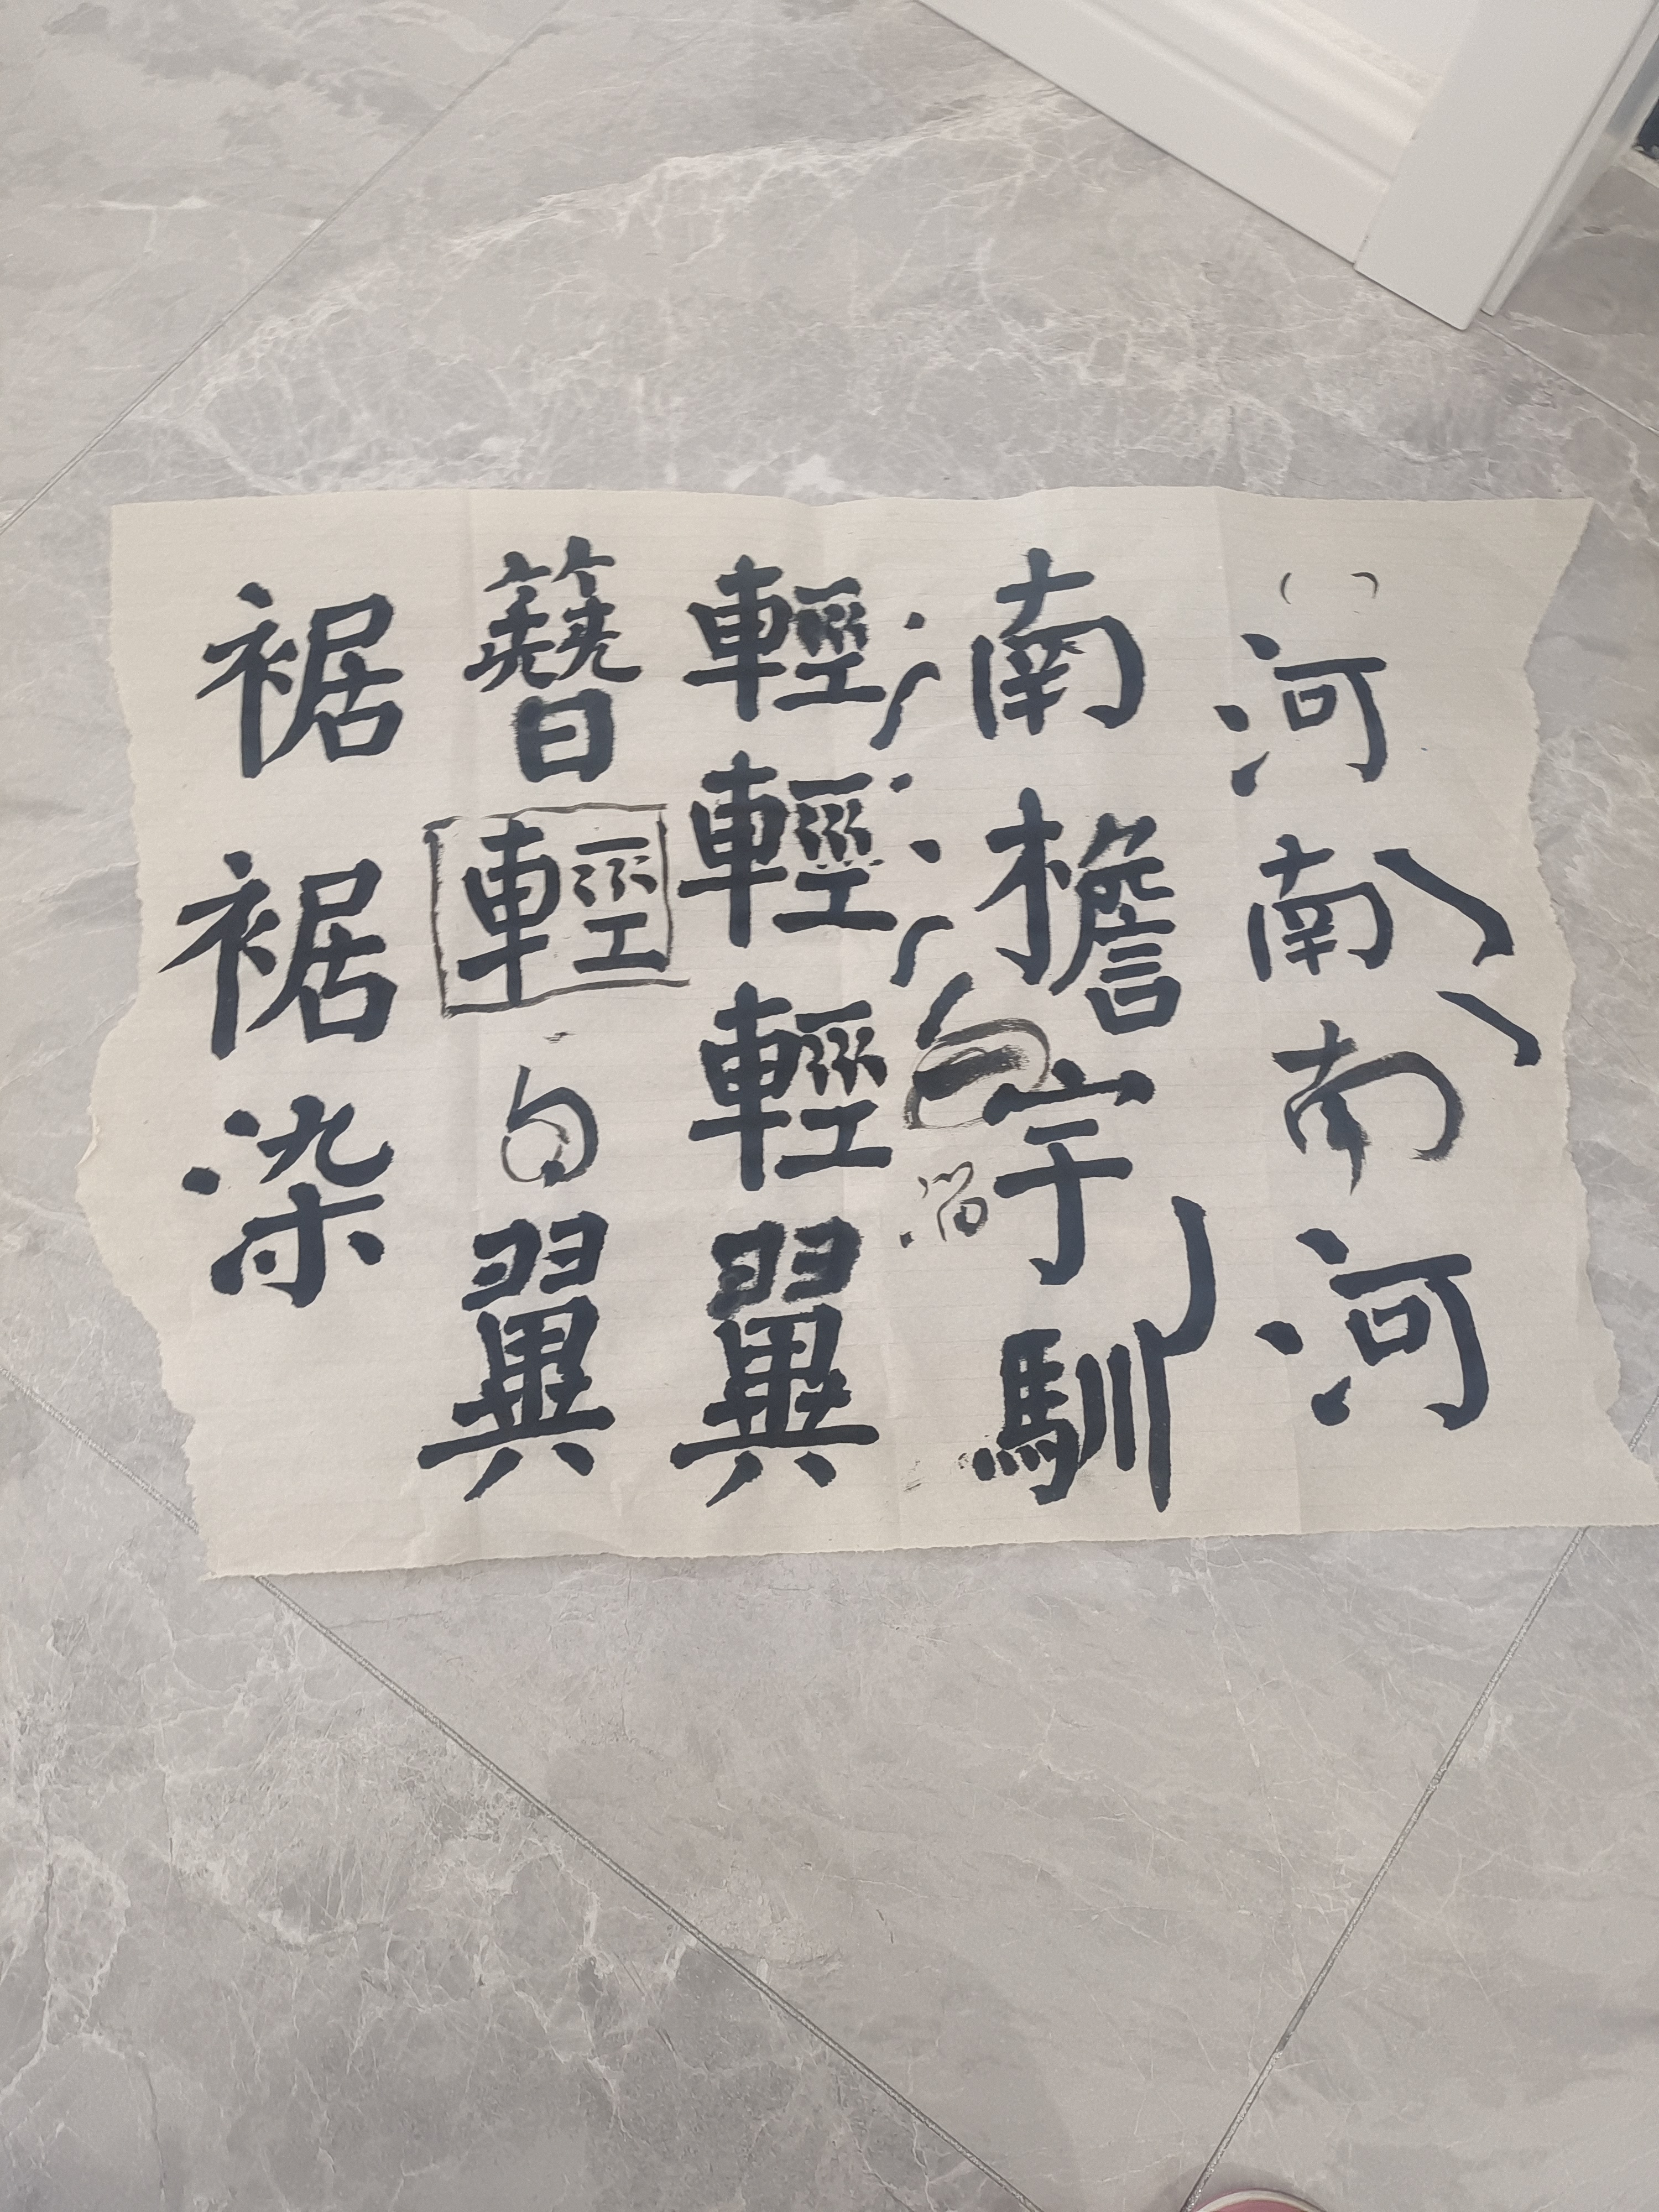 河南南河
南檐宇馴
輕輕輕翼
簪輕句翼
裾裾染